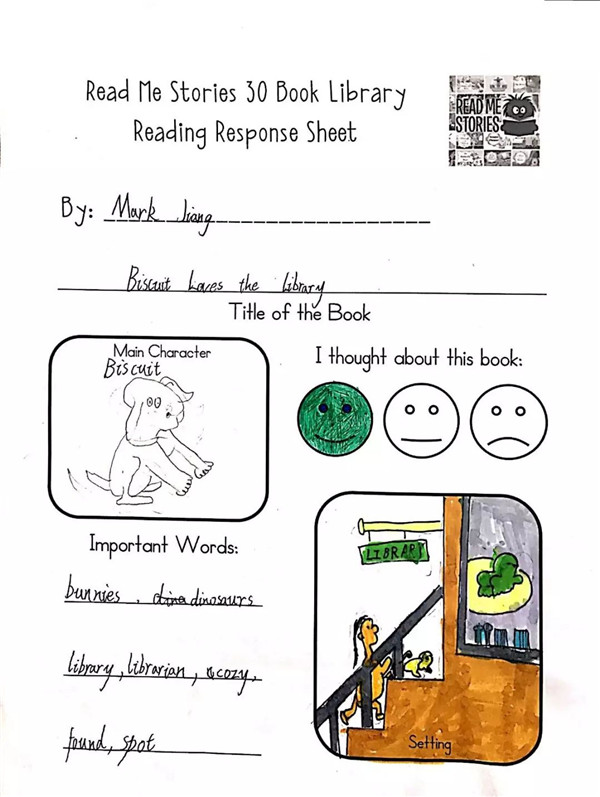 Read Me Stories 30 Book Library
Reading Response Sheet
READ ME
STORIES
By: Mark Jiang
Biscuit Loves the library
Title of the Book
Main Character
Biscuit
I thought about this book:
Important Words:
bunnies . dina dinosaurs
library, librarian, cozy,
found, spot
LIBRARY
Setting